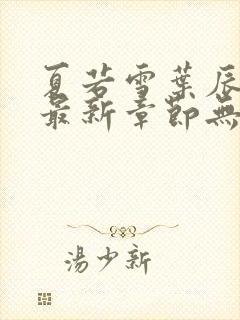 夏若雪葉辰
最新章節無
湯少新